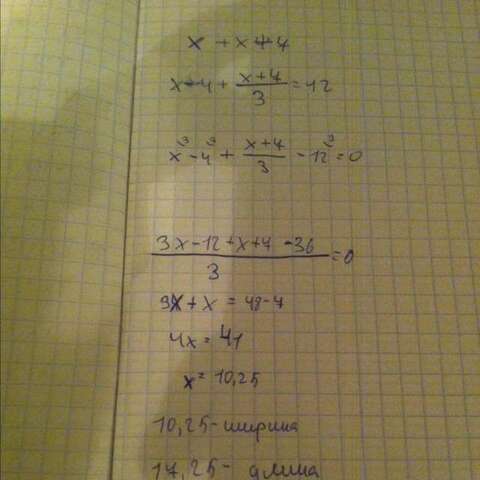 x + x + 4
x-4 + x+4/3 = 12
x³ - 4³ + x+4/3 - 12³ = 0
3x-12+x+4-36/3 = 0
3x + x = 48-7
4x = 41
x = 10,25
10,25- ширина
17,25- длина